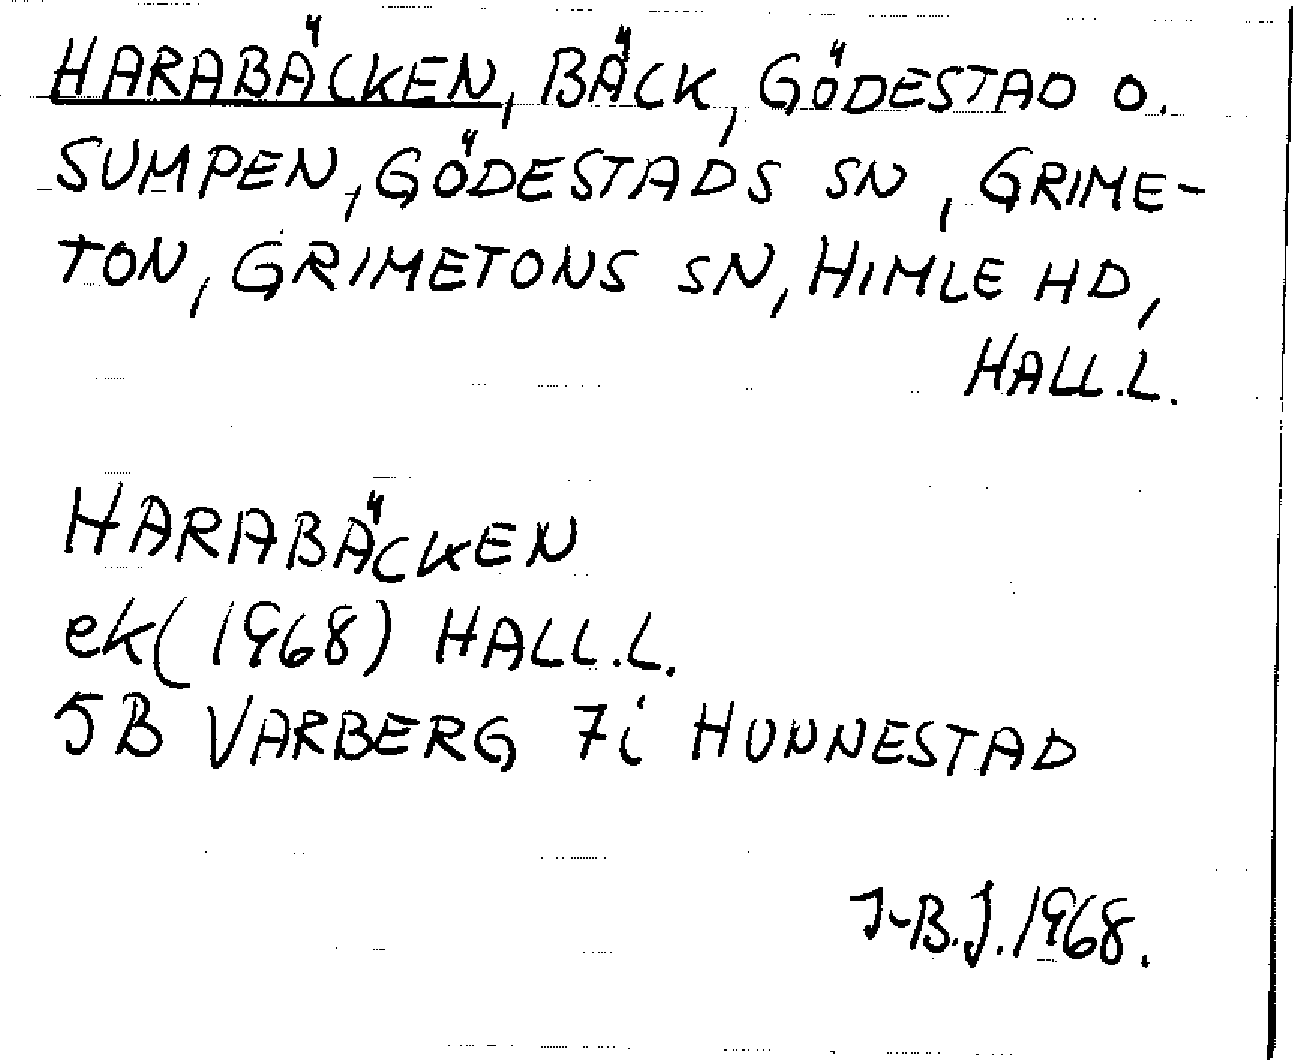 HARABÄCKEN, BÄCK, GÖDESTAD O.
SUMPEN, GÖDESTADS SN, GRIME-
TON, GRIMETONS SN, HIMLE HD,
HALL.L.
HARABÄCKEN
ek (1968) HALL.L.
5B VARBERG 7i HUNNESTAD
J-B.J. 1968.